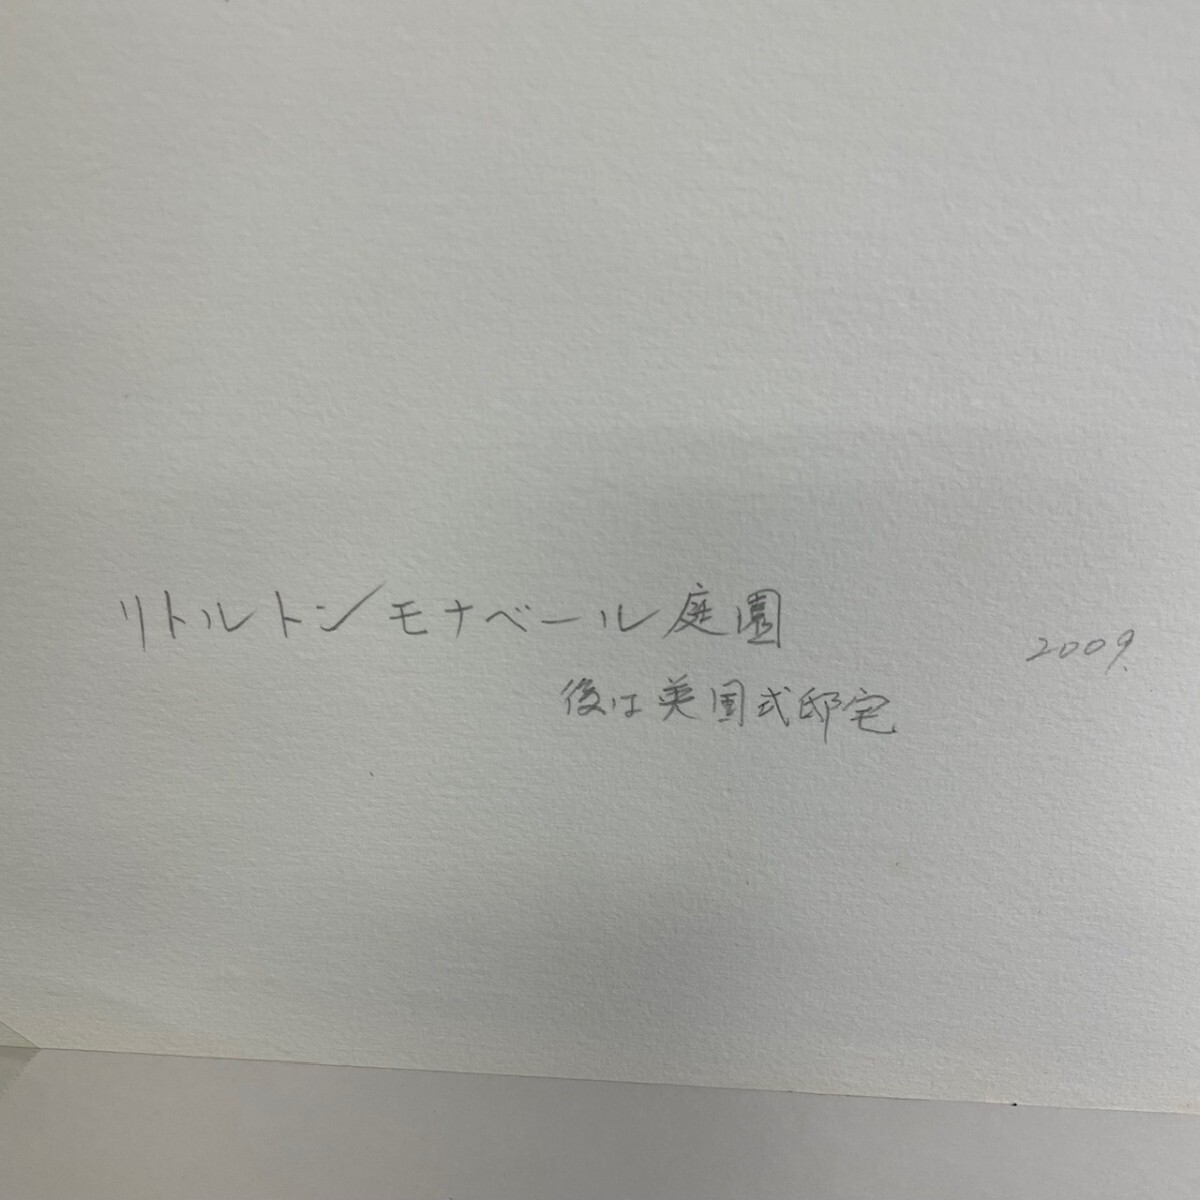 リトルトンモナベール庭園
2009.
後は英国式邸宅